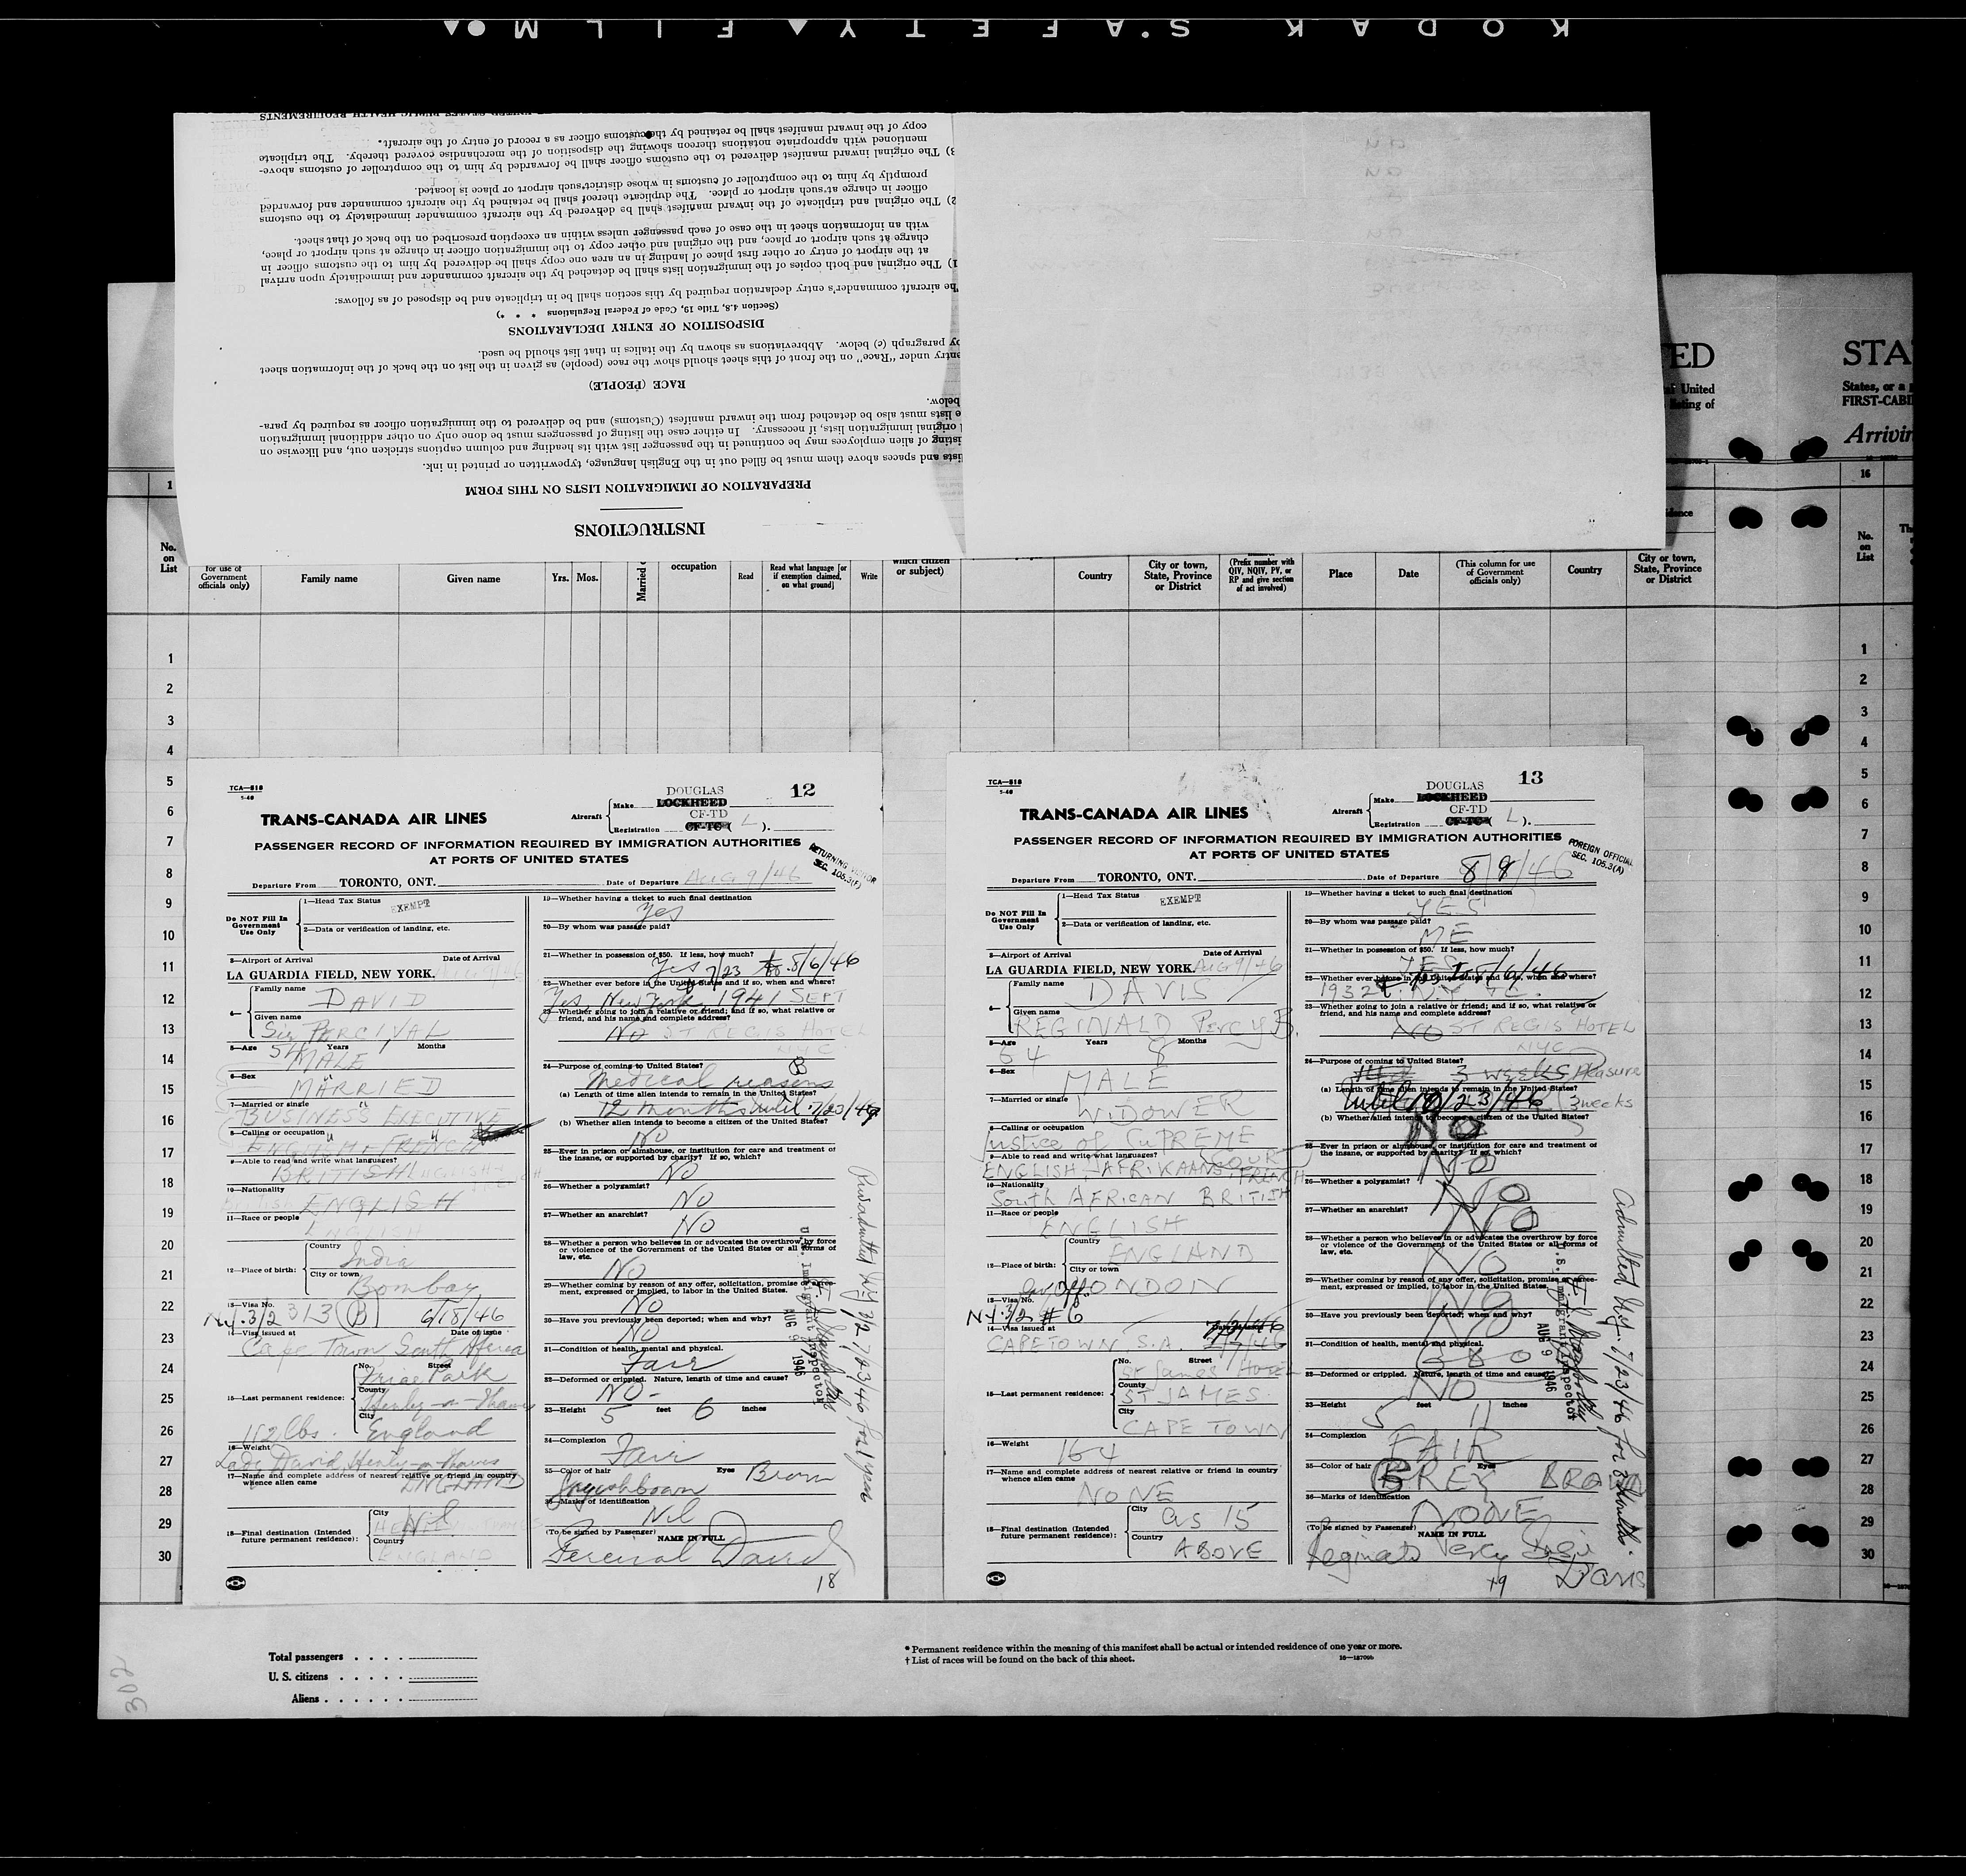 KODAK SAFETY FILM
INSTRUCTIONS
PREPARATION OF IMMIGRATION LISTS ON THIS FORM
and spaces above them must be filled out in the English language, typewritten or printed in ink.
of alien employees may be continued in the passenger list with its heading and column captions stricken out, and likewise on
original immigration lists, if necessary. In either case the listing of passengers must be done only on other additional immigration
lists must also be detached from the inward manifest (Customs) and be delivered to the immigration officer as required by para-
below.
RACE (PEOPLE)
entry under "Race" on the front of this sheet should show the race (people) as given in the list on the back of the information sheet
by paragraph (c) below. Abbreviations as shown by the italics in that list should be used.
DISPOSITION OF ENTRY DECLARATIONS
(Section 4.8, Title 19, Code of Federal Regulations * * *)
The aircraft commander's entry declaration required by this section shall be in triplicate and be disposed of as follows:
1) The original and both copies of the immigration lists shall be detached by the aircraft commander and immediately upon arrival
at the airport of entry or other first place of landing in an area one copy shall be delivered by him to the customs officer in
charge at such airport or place, and the original and other copy to the immigration officer in charge at such airport or place,
with an information sheet in the case of each passenger unless within an exception prescribed on the back of that sheet.
2) The original and triplicate of the inward manifest shall be delivered by the aircraft commander immediately to the customs
officer in charge at such airport or place. The duplicate thereof shall be retained by the aircraft commander and forwarded
promptly by him to the comptroller of customs in whose district such airport or place is located.
3) The original inward manifest delivered to the customs officer shall be forwarded by him to the comptroller of customs above-
mentioned with appropriate notations thereon showing the disposition of the merchandise covered thereby. The triplicate
copy of the inward manifest shall be retained by the customs officer as a record of entry of the aircraft.
ED STA
of United States, or a
listing of FIRST-CABI
Arrivin
1 16
No. on List
for use of Government officials only)
Family name
Given name
Yrs. Mos.
Married
occupation
Read
Read what language [or if exemption claimed, on what ground]
Write
which citizen or subject)
Country
City or town, State, Province or District
(Prefix number with QIV, NQIV, PV, or RP and give section of act involved)
Place
Date
(This column for use of Government officials only)
Country
City or town, State, Province or District
No. on List
1
2
3
4
5
6
7
8
9
10
11
12
13
14
15
16
17
18
19
20
21
22
23
24
25
26
27
28
29
30
TCA—518
1-46
DOUGLAS
12
TRANS-CANADA AIR LINES
Aircraft Make LOCKHEED
CF-TD
Registration CF-TC ( L ).
PASSENGER RECORD OF INFORMATION REQUIRED BY IMMIGRATION AUTHORITIES
AT PORTS OF UNITED STATES
RETURNING VISITOR
SEC. 105.3(F)
Departure From TORONTO, ONT. Date of Departure Aug 9/46
Do NOT Fill In Government Use Only
1—Head Tax Status EXEMPT
2—Data or verification of landing, etc.
3—Airport of Arrival Date of Arrival
LA GUARDIA FIELD, NEW YORK. Aug 9/46
4— Family name DAVID
Given name Sir PERCIVAL
5—Age 54 Years 1 Months
MALE
6—Sex
MARRIED
7—Married or single
BUSINESS EXECUTIVE
8—Calling or occupation
ENGLISH FRENCH
9—Able to read and write what languages?
BRITISH
10—Nationality
ENGLISH
11—Race or people
ENGLISH
12—Place of birth: Country India
City or town Bombay
13—Visa No.
N.Y. 3/2 313 (B) 6/18/46
14—Visa issued at Date of issue
Cape Town South Africa
15—Last permanent residence: No. Street Friar Park
County Henley-on-Thames
City England
112 lbs.
16—Weight
Lady David, Henley-on-Thames
17—Name and complete address of nearest relative or friend in country whence alien came ENGLAND
18—Final destination (Intended future permanent residence): City Nil
Country ENGLAND
19—Whether having a ticket to such final destination
Yes
20—By whom was passage paid?
21—Whether in possession of $50. If less, how much?
Yes 7/23 to 8/6/46
22—Whether ever before in the United States and if so, when and where?
Yes, New York, 1941 SEPT
23—Whether going to join a relative or friend; and if so, what relative or friend, and his name and complete address?
No ST REGIS HOTEL
NYC
24—Purpose of coming to United States?
Medical reasons
(a) Length of time alien intends to remain in the United States?
12 months until 7/23/47
(b) Whether alien intends to become a citizen of the United States?
No
25—Ever in prison or almshouse, or institution for care and treatment of the insane, or supported by charity? If so, which?
No
26—Whether a polygamist?
No
27—Whether an anarchist?
No
28—Whether a person who believes in or advocates the overthrow by force or violence of the Government of the United States or all forms of law, etc.
No
29—Whether coming by reason of any offer, solicitation, promise or agreement, expressed or implied, to labor in the United States.
No
30—Have you previously been deported; when and why?
No
31—Condition of health, mental and physical.
Fair
32—Deformed or crippled. Nature, length of time and cause?
NO-
33—Height 5 feet 6 inches
34—Complexion
Fair
35—Color of hair Eyes Brown
Greyish brown
36—Marks of identification
Nil
(To be signed by Passenger) NAME IN FULL
Percival David
18
U.S. Immigrant Inspector
AUG 9 1946
Prev. admitted NY 3/2 - 7/23/46 for 1 year
TCA—518
1-46
DOUGLAS
13
TRANS-CANADA AIR LINES
Aircraft Make LOCKHEED
CF-TD
Registration CF-TC ( L ).
PASSENGER RECORD OF INFORMATION REQUIRED BY IMMIGRATION AUTHORITIES
AT PORTS OF UNITED STATES
FOREIGN OFFICIAL
SEC. 105.3(A)
Departure From TORONTO, ONT. Date of Departure 8/9/46
Do NOT Fill In Government Use Only
1—Head Tax Status EXEMPT
2—Data or verification of landing, etc.
3—Airport of Arrival Date of Arrival
LA GUARDIA FIELD, NEW YORK. Aug 9/46
4— Family name DAVIS
Given name REGINALD Percy B.
5—Age 64 Years 8 Months
6—Sex
MALE
7—Married or single
WIDOWER
8—Calling or occupation
Justice of SUPREME COURT
9—Able to read and write what languages?
ENGLISH AFRIKAANS FRENCH
10—Nationality
South AFRICAN BRITISH
11—Race or people
ENGLISH
12—Place of birth: Country ENGLAND
City or town LONDON
13—Visa No. Gov. Off.
N.Y. 3/2 # 6
14—Visa issued at
CAPETOWN S.A.
15—Last permanent residence: No. Street St James HOTEL
County ST JAMES
City CAPE TOWN
16—Weight 164
17—Name and complete address of nearest relative or friend in country whence alien came
NONE
18—Final destination (Intended future permanent residence): City as 15
Country ABOVE
19—Whether having a ticket to such final destination
YES
20—By whom was passage paid?
ME
21—Whether in possession of $50. If less, how much?
YES
22—Whether ever before in the United States and if so, when and where?
1932
23—Whether going to join a relative or friend; and if so, what relative or friend, and his name and complete address?
NO ST REGIS HOTEL
NYC
24—Purpose of coming to United States?
3 weeks Pleasure
(a) Length of time alien intends to remain in the United States?
until 10/23/46 3 weeks
(b) Whether alien intends to become a citizen of the United States?
No
25—Ever in prison or almshouse, or institution for care and treatment of the insane, or supported by charity? If so, which?
No
26—Whether a polygamist?
NO
27—Whether an anarchist?
NO
28—Whether a person who believes in or advocates the overthrow by force or violence of the Government of the United States or all forms of law, etc.
NO
29—Whether coming by reason of any offer, solicitation, promise or agreement, expressed or implied, to labor in the United States.
NO
30—Have you previously been deported; when and why?
31—Condition of health, mental and physical.
32—Deformed or crippled. Nature, length of time and cause?
NO
33—Height 5 feet 11 inches
34—Complexion
FAIR
35—Color of hair Eyes
GREY BROWN
36—Marks of identification
NONE
(To be signed by Passenger) NAME IN FULL
Reginald Percy
Davis
19
U.S. Immigrant Inspector
AUG 9 1946
Admitted N.Y. 7/23/46 for 3 months.
Total passengers
U. S. citizens
Aliens
* Permanent residence within the meaning of this manifest shall be actual or intended residence of one year or more.
† List of races will be found on the back of this sheet.
302